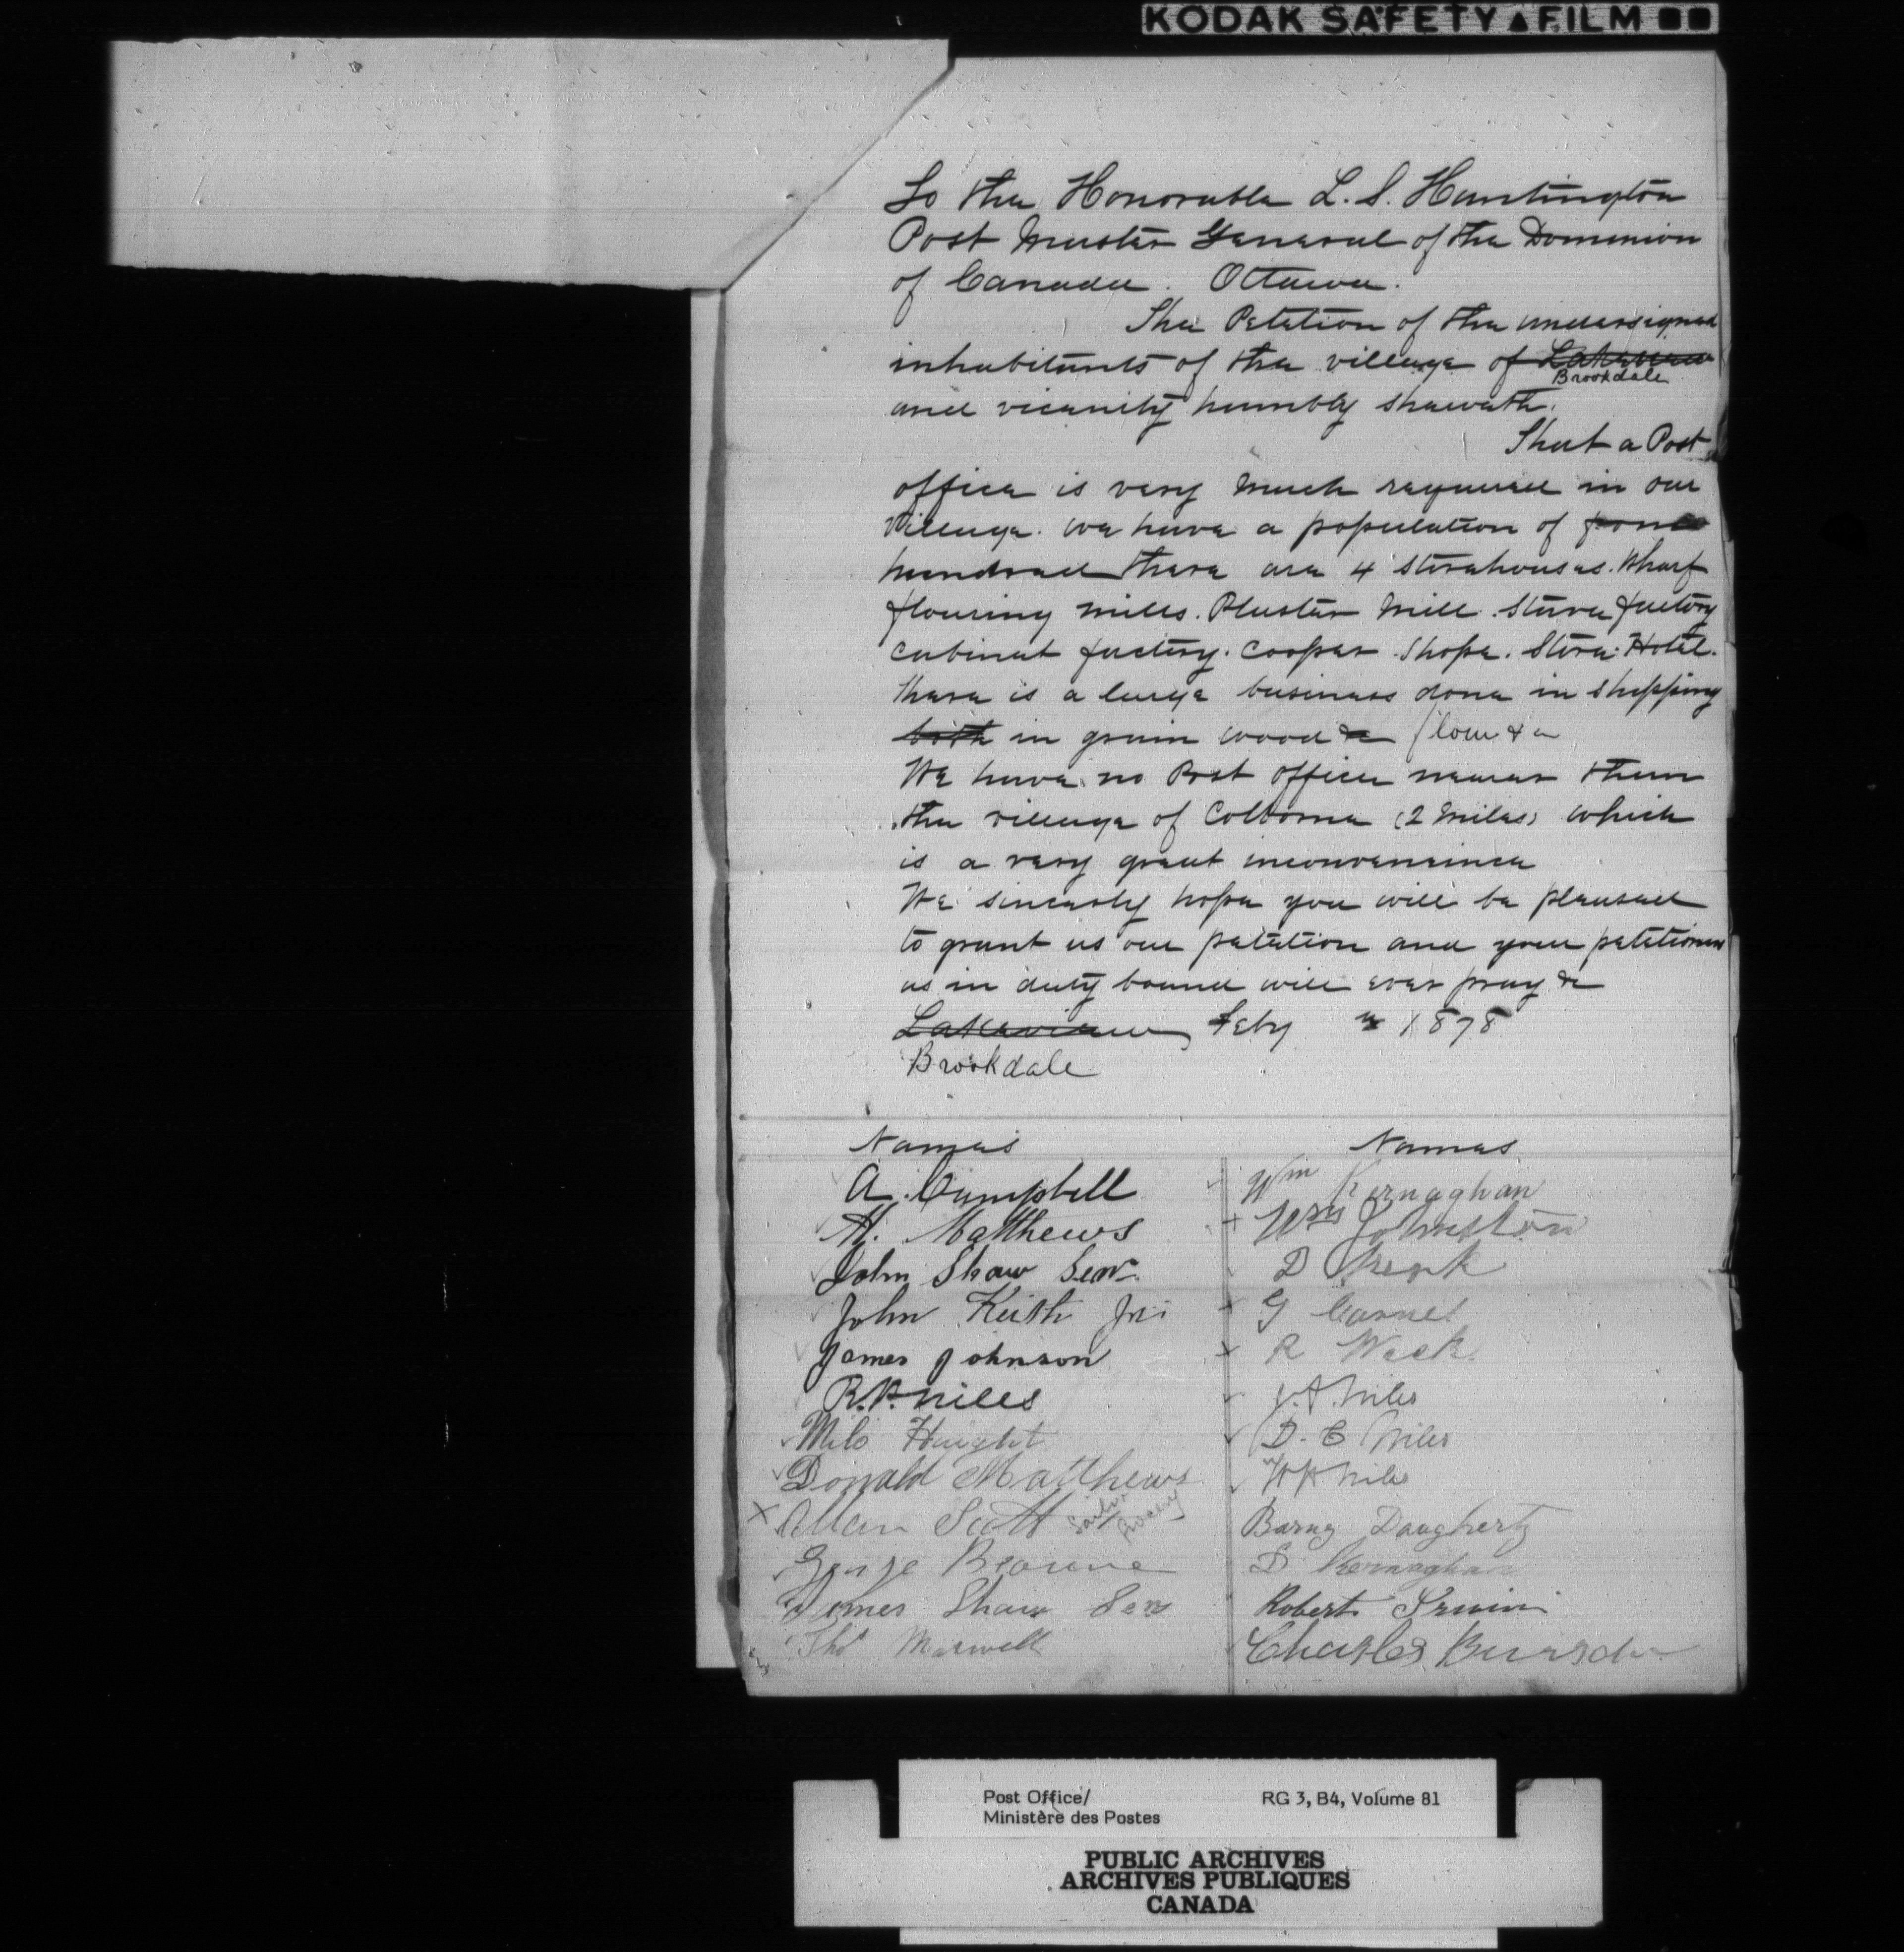 KODAK SAFETY ▲ FILM
To the Honorable L. S. Huntington
Post Master General of the Dominion
of Canada. Ottawa.
The Petition of the undersigned
inhabitants of the village of Lakeview
Brookdale
and vicinity humbly sheweth.
That a Post
office is very much required in our
village. We have a population of
hundred there are 4 storehouses. Wharf
flouring mills. Plaster Mill. Stave factory
cabinet factory. Cooper Shops. Store. Hotel.
There is a large business done in shipping
both in grain wood & flour &c
We have no Post office nearer than
the village of Colborne (2 miles) which
is a very great inconvenience
We sincerly hope you will be pleased
to grant us our petition and your petitioners
as in duty bound will ever pray &c
Lakeview Feby 1878
Brookdale
Names Names
A. Campbell Wm Kernaghan
H. Matthews Wm Johnston
John Shaw Senr. D
John Keith Jr. G
James Johnson R
R.P. Niles J.A. Niles
Milo Haight D. C Niles
Donald Matthews W H Niles
Allan Scott Barny Daugherty
George Browne D Kernaghan
James Shaw Sen Robert Irwin
Thos Maxwell Charles
Post Office/ RG 3, B4, Volume 81
Ministère des Postes
PUBLIC ARCHIVES
ARCHIVES PUBLIQUES
CANADA